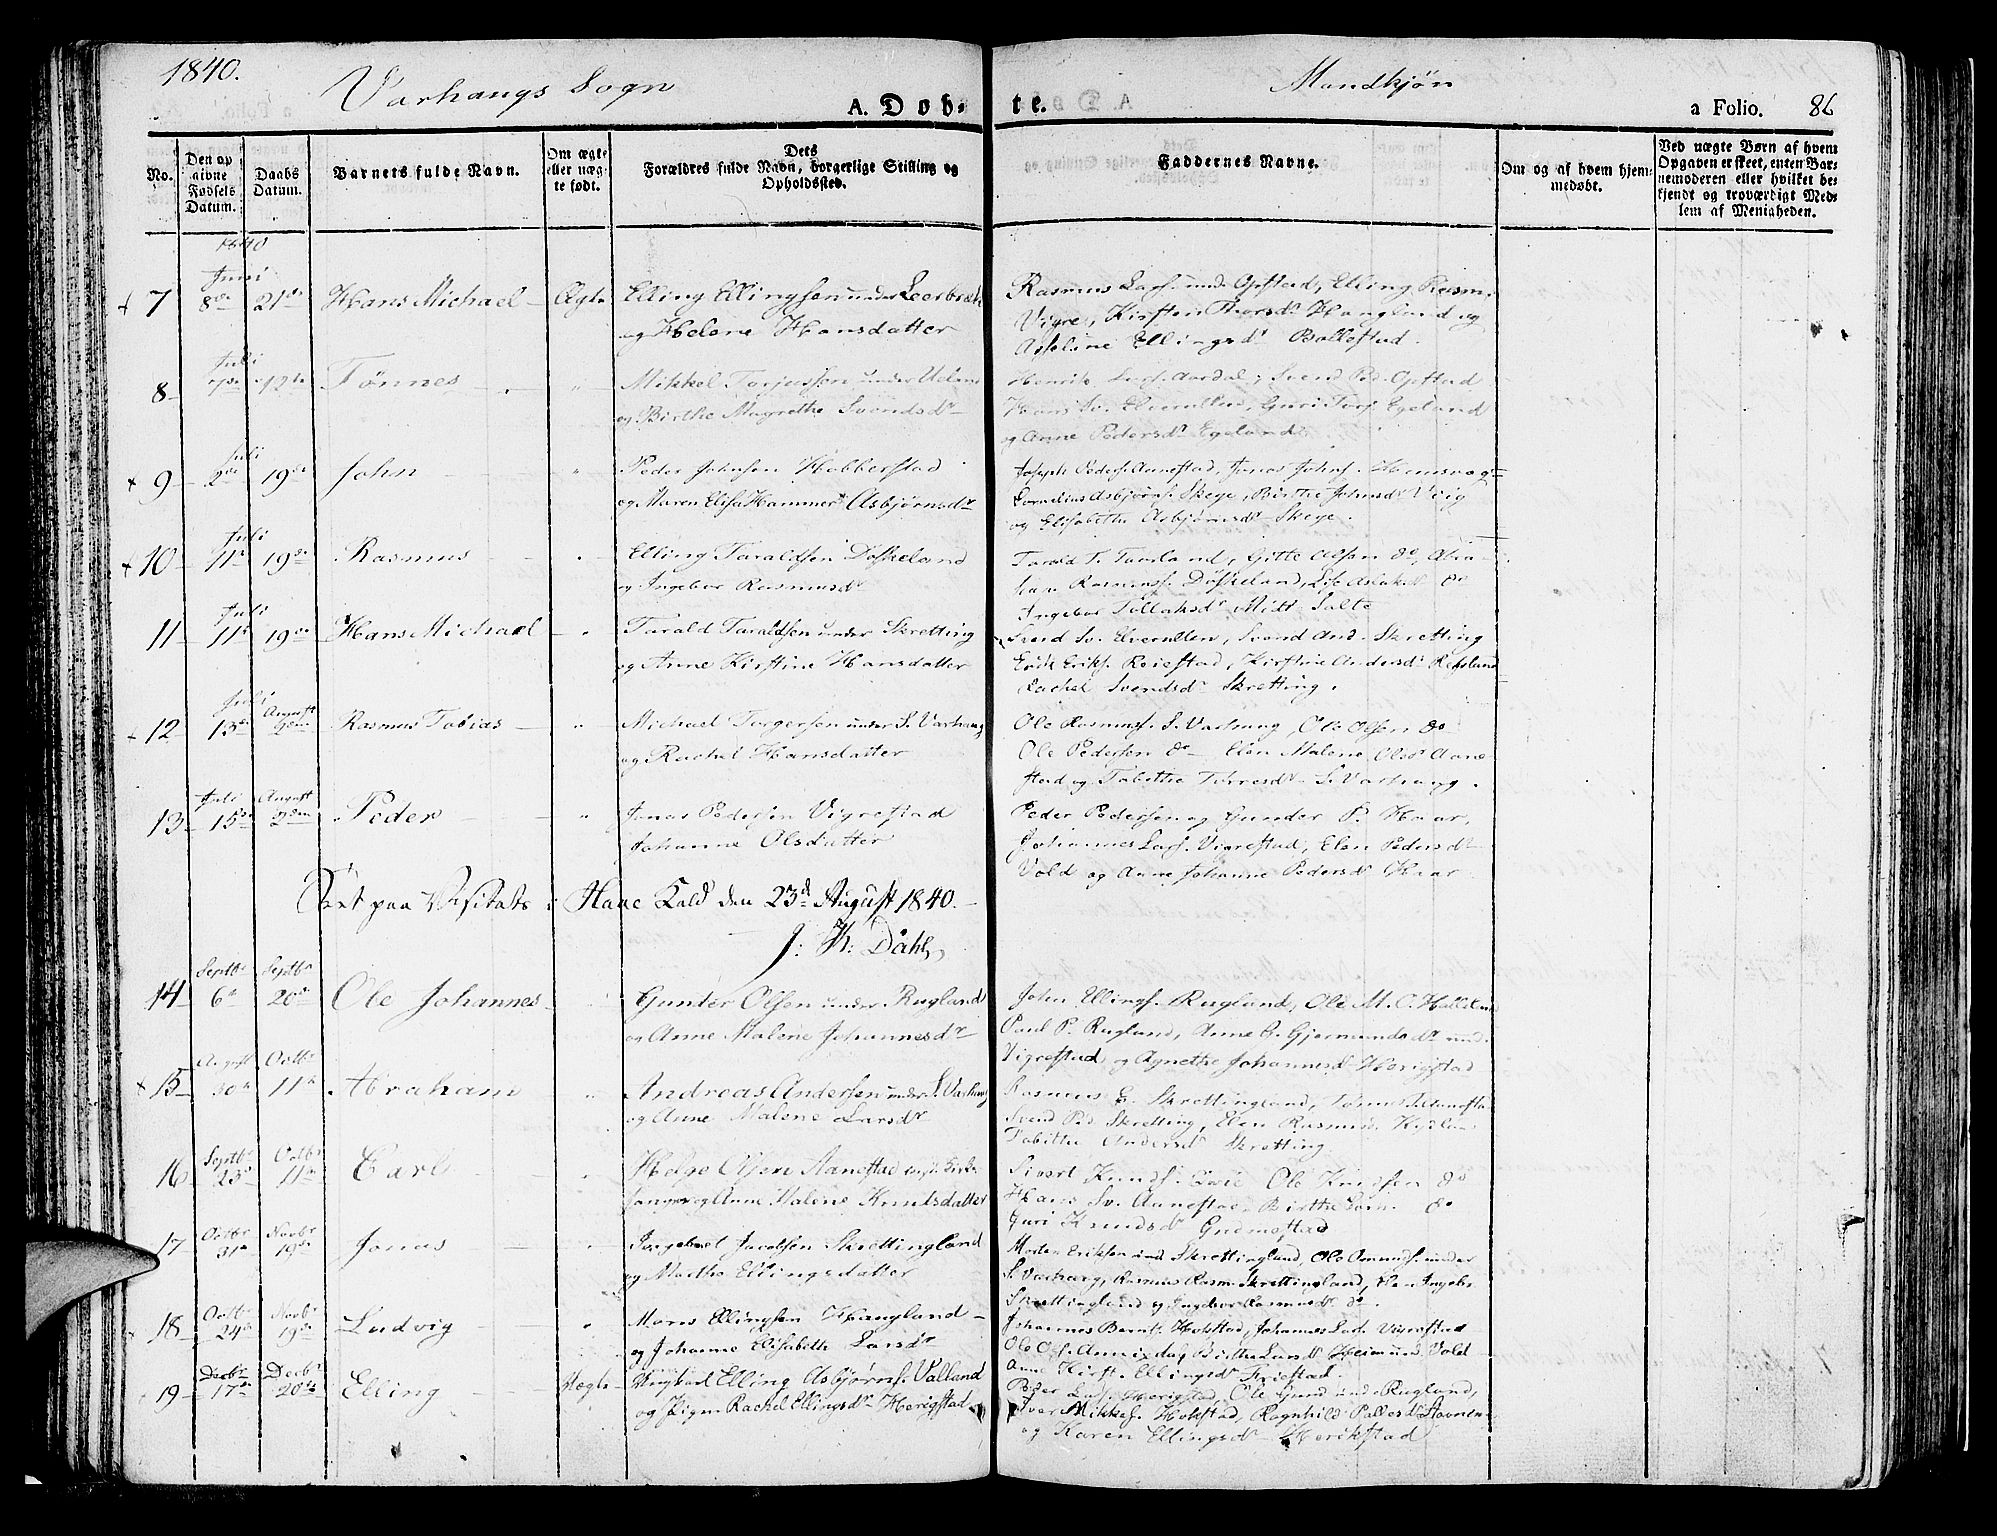 1840.
Varhaugs Sogn
A. Døb-
te.
Mandkjøn
a Folio. 86
No.
Den opgivne Fødsels Datum.
Daabs Datum.
Barnets fulde Navn.
Om ægte eller nægte født.
Dets Forældres fulde Navn, borgerlige Stilling og Opholdssted.
Faddernes Navne.
Om og af hvem hjemmedøbt.
Ved uægte Børn af hvem Opgaven er skeet, enten Barnemoderen eller hvilket bekjendt og troværdigt Medlem af Menigheden.
1840
7 Juni 8de 21de Hans Michael Ægte Elling Ellingsen under Leerbræk
og Helene Hansdatter
Rasmus Lars. und. Opstad, Elling Rasm.
Vigre, Kirsten Thorsdr Haugland og
Asseline Ellingsdr Ballestad.
8 Juli 7de 12te Tønnes " Mikkel Torjussen under
og Birthe Magrethe Svendsdr
Henrik Lars. Aardal, Svend Ped. Opstad
Hans Sv. Guri Torj. Egeland
og Anne Pedersdr Egeland
9 Juli 2den 19de John " Peder Johnsen Hobberstad
og Maren Elisa Hammer Asbjørnsdr
Joseph Peders. Aanestad, Jonas Johns.
Cornelius Asbjørns. Skeye, Birthe Johnsdr Viig
og Elisabethe Asbjørnsdr Skeye.
10 Juli 11te 19de Rasmus " Elling Taraldsen Døskeland
og Ingebor Rasmusdr
Tarald T. Tamland, Gitte Olsen do, Abra-
ham Rasmuss. Døskeland, do
Ingebor Tollaksdr Midt-Salte
11 Juli 11te 19de Hans Michael " Tarald Taraldsen under Skretting
og Anne Kirstine Hansdatter
Svend Sv. Svend And. Skretting
Erik Eriks. Reiestad, Kirstine Andersdr
Rachel Svendsdr Skretting.
12 Juli 13de August 2den Rasmus Tobias " Michael Torgersen under S. Varhaug
og Rachel Hansdatter
Ole Rasmuss. S. Varhaug, Ole Olsen do
Ole Pedersen do Elen Malene Olsdr Aane-
stad og Tabithe Torresdr S. Varhaug.
13 Juli 15de August 2den Peder " Jonas Pedersen Vigrestad
Johanne Olsdatter
Peder Pedersen og Gunder P. Haar,
Johannes Lars. Vigrestad, Elen Pedersdr
Vold og Anne Johanne Pedersdr Haar
Seet paa Visitats i Haae Kald den 23d August 1840.
J: K: Dahl,
14 Septbr 6te 20de Ole Johannes Gunder Olsen under Rugland
og Anne Malene Johannesdr
John Ellings. Rugland, Ole M. C.
Paul P. Rugland, Anne G. Gjermundsdr und.
Vigrestad og Agnethe Johannesd Herigstad
15 August 30te Octbr 11te Abraham " Andreas Andersen under S. Varhaug
og Anne Malene Larsdr
Rasmus E. Skrettingland,
Svend Ped. Skretting, Elen Rasmusd.
Tabithe Andersdr Skretting
16 Septbr 23d Octbr 11te Carl Helge Olsen Aanestad
sanger og Anne Malene Knutsdatter
Sivert Knuds. Ole Knudsen do
Hans Sv. Aanestad Birthe do
Guri Knudsdr Gudmestad
17 Octbr 31te Novbr 19de Jonas Ingebret Jacobsen Skrettingland
og Marthe Ellingsdatter
Morten Eriksen und. Skrettingland, Ole Omunds. under
S. Varhaug, Rasmus Rasm. Skrettingland,
Skrettingland og Ingebor Rasmusdr do.
18 Octbr 24de Novbr 19de Ludvig " Mons Ellingsen Haugland
og Johanne Elisabeth Larsdr
Johannes Bernts. Hobstad, Johannes Lars. Vigrestad
Ole Ols. Birthe Larsdr Vold
Anne Kirst. Ellingsdr Friestad
19 Decbr 17de Decbr 20de Elling Uægte Ungkarl Elling Asbjørns. Valland
og Pigen Rachel Ellingsdr Herigstad
Peder Lars. Herigstad, Ole Gund. und. Rugland,
Iver Mikkels. Hobstad, Ragnhild Pallesdr
og Karen Ellingsdr Herikstad